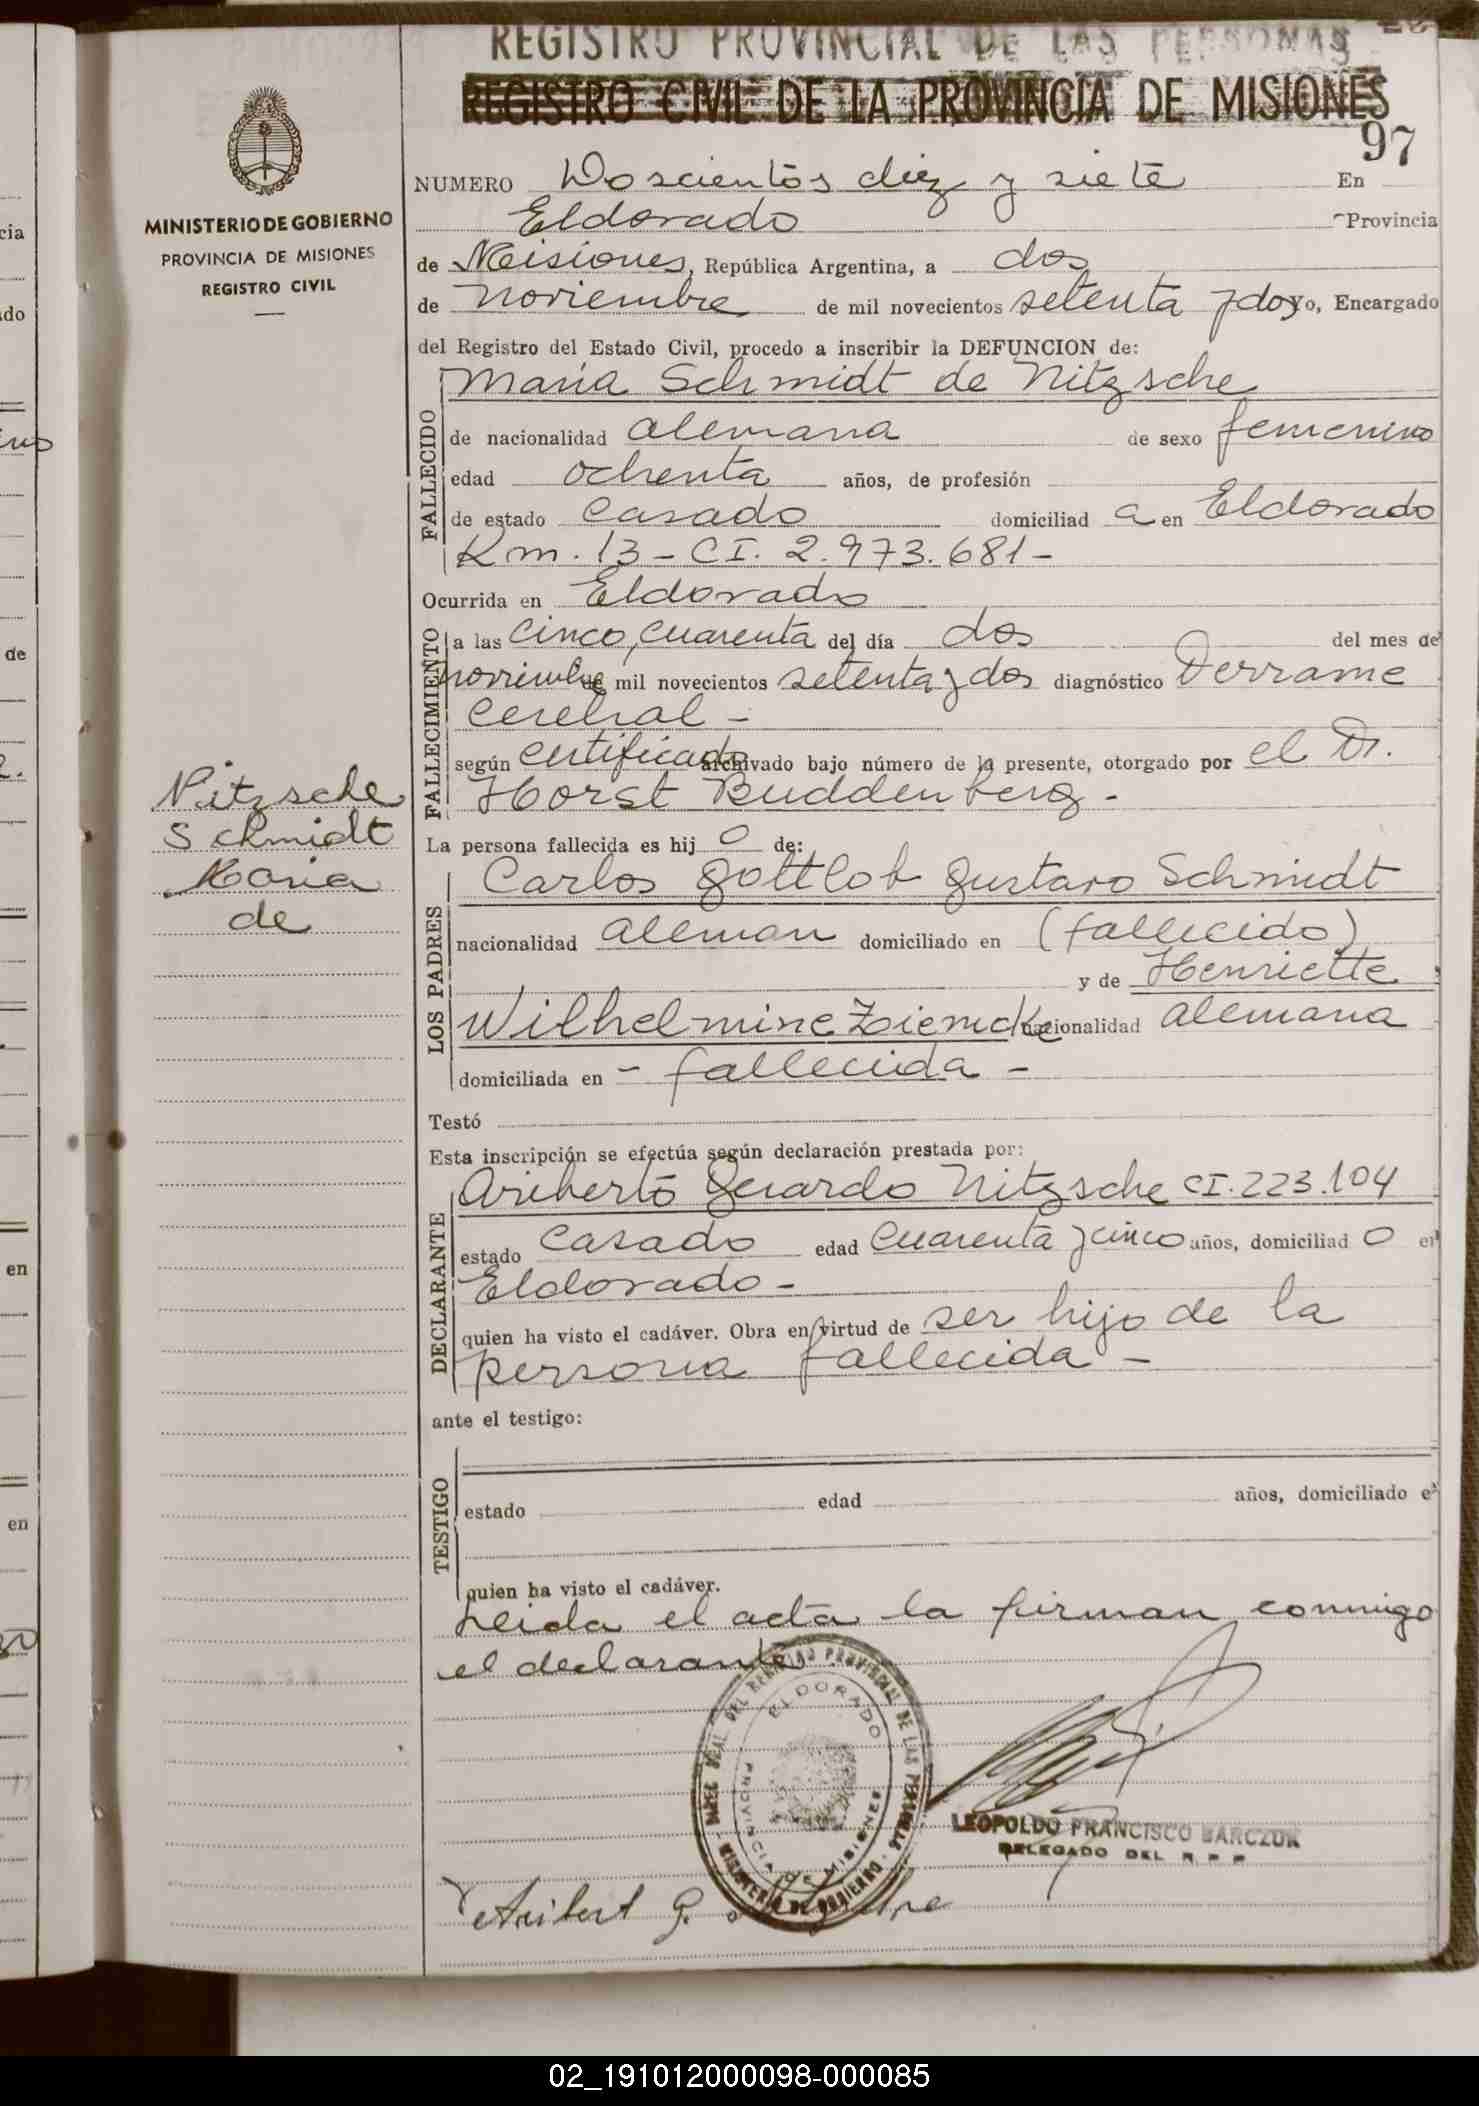 REGISTRO PROVINCIAL DE LAS PERSONAS
REGISTRO CIVIL DE LA PROVINCIA DE MISIONES
97
MINISTERIO DE GOBIERNO
PROVINCIA DE MISIONES
REGISTRO CIVIL
NUMERO Doscientos diez y siete En
Eldorado Provincia
de Misiones, República Argentina, a dos
de noviembre de mil novecientos setenta y dos yo, Encargado
del Registro del Estado Civil, procedo a inscribir la DEFUNCION de:
FALLECIDO
Maria Schmidt de Nitzsche
de nacionalidad alemana de sexo femenino
edad ochenta años, de profesión
de estado casado domiciliad a en Eldorado
Km. 13 - CI. 2.973.681 -
Ocurrida en Eldorado
FALLECIMIENTO
a las cinco, cuarenta del día dos del mes de
noviembre de mil novecientos setenta y dos diagnóstico Derrame
cerebral -
según certificado archivado bajo número de la presente, otorgado por el Dr.
Horst Buddenberg -
Nitzsche
Schmidt
Maria
de
La persona fallecida es hij o de:
LOS PADRES
Carlos Gottlob Gustavo Schmidt
nacionalidad aleman domiciliado en (fallecido)
y de Henriette
Wilhelmine Ziemcke nacionalidad alemana
domiciliada en - fallecida -
Testó
Esta inscripción se efectúa según declaración prestada por:
DECLARANTE
Ariberto Gerardo Nitzsche CI. 223.104
estado casado edad cuarenta y cinco años, domiciliad o en
Eldorado -
quien ha visto el cadáver. Obra en virtud de ser hijo de la
persona fallecida -
ante el testigo:
TESTIGO
estado edad años, domiciliado en
quien ha visto el cadáver.
Leida el acta la firman conmigo
el declarante
ELDORADO
PROVINCIA DE MISIONES
MINISTERIO DE GOBIERNO
LEOPOLDO FRANCISCO BARCZUK
DELEGADO DEL R P P
Aribert G.
02_191012000098-000085
cia
do
de
en
en